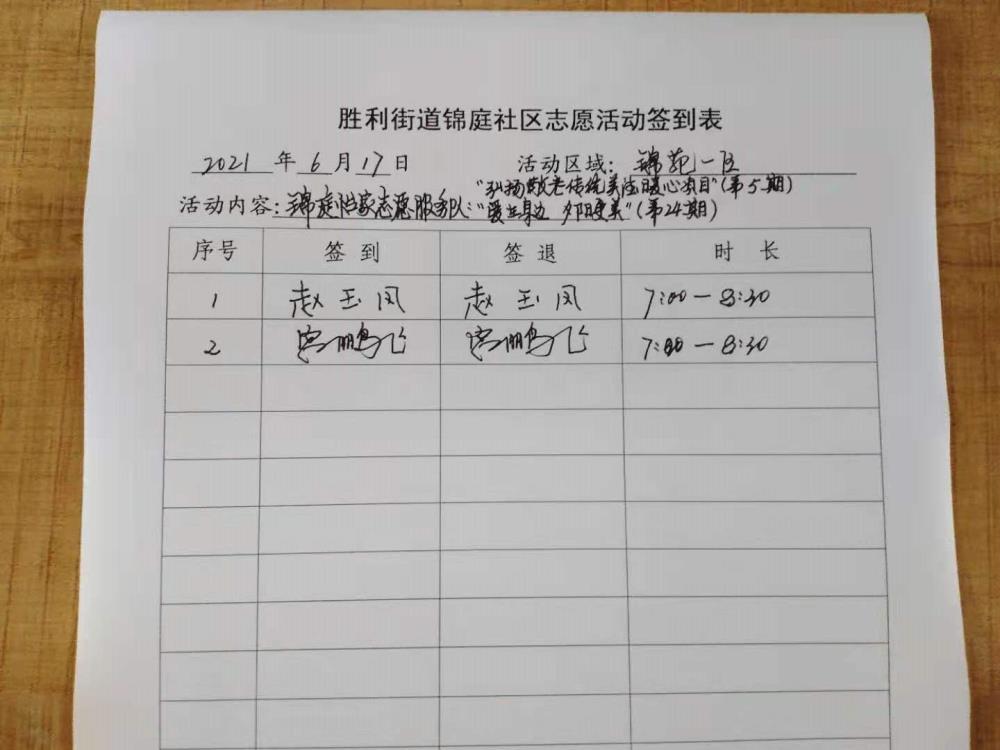 胜利街道锦庭社区志愿活动签到表
2021 年 6 月 17 日 活动区域: 锦苑一区
"弘扬敬老传统美德暖心项目"(第5期)
活动内容: 锦庭怡家志愿服务队: "爱在身边 夕阳更美"(第24期)
序号 签到 签退 时长
1 赵玉凤 赵玉凤 7:00-8:30
2 鹏飞 鹏飞 7:00-8:30